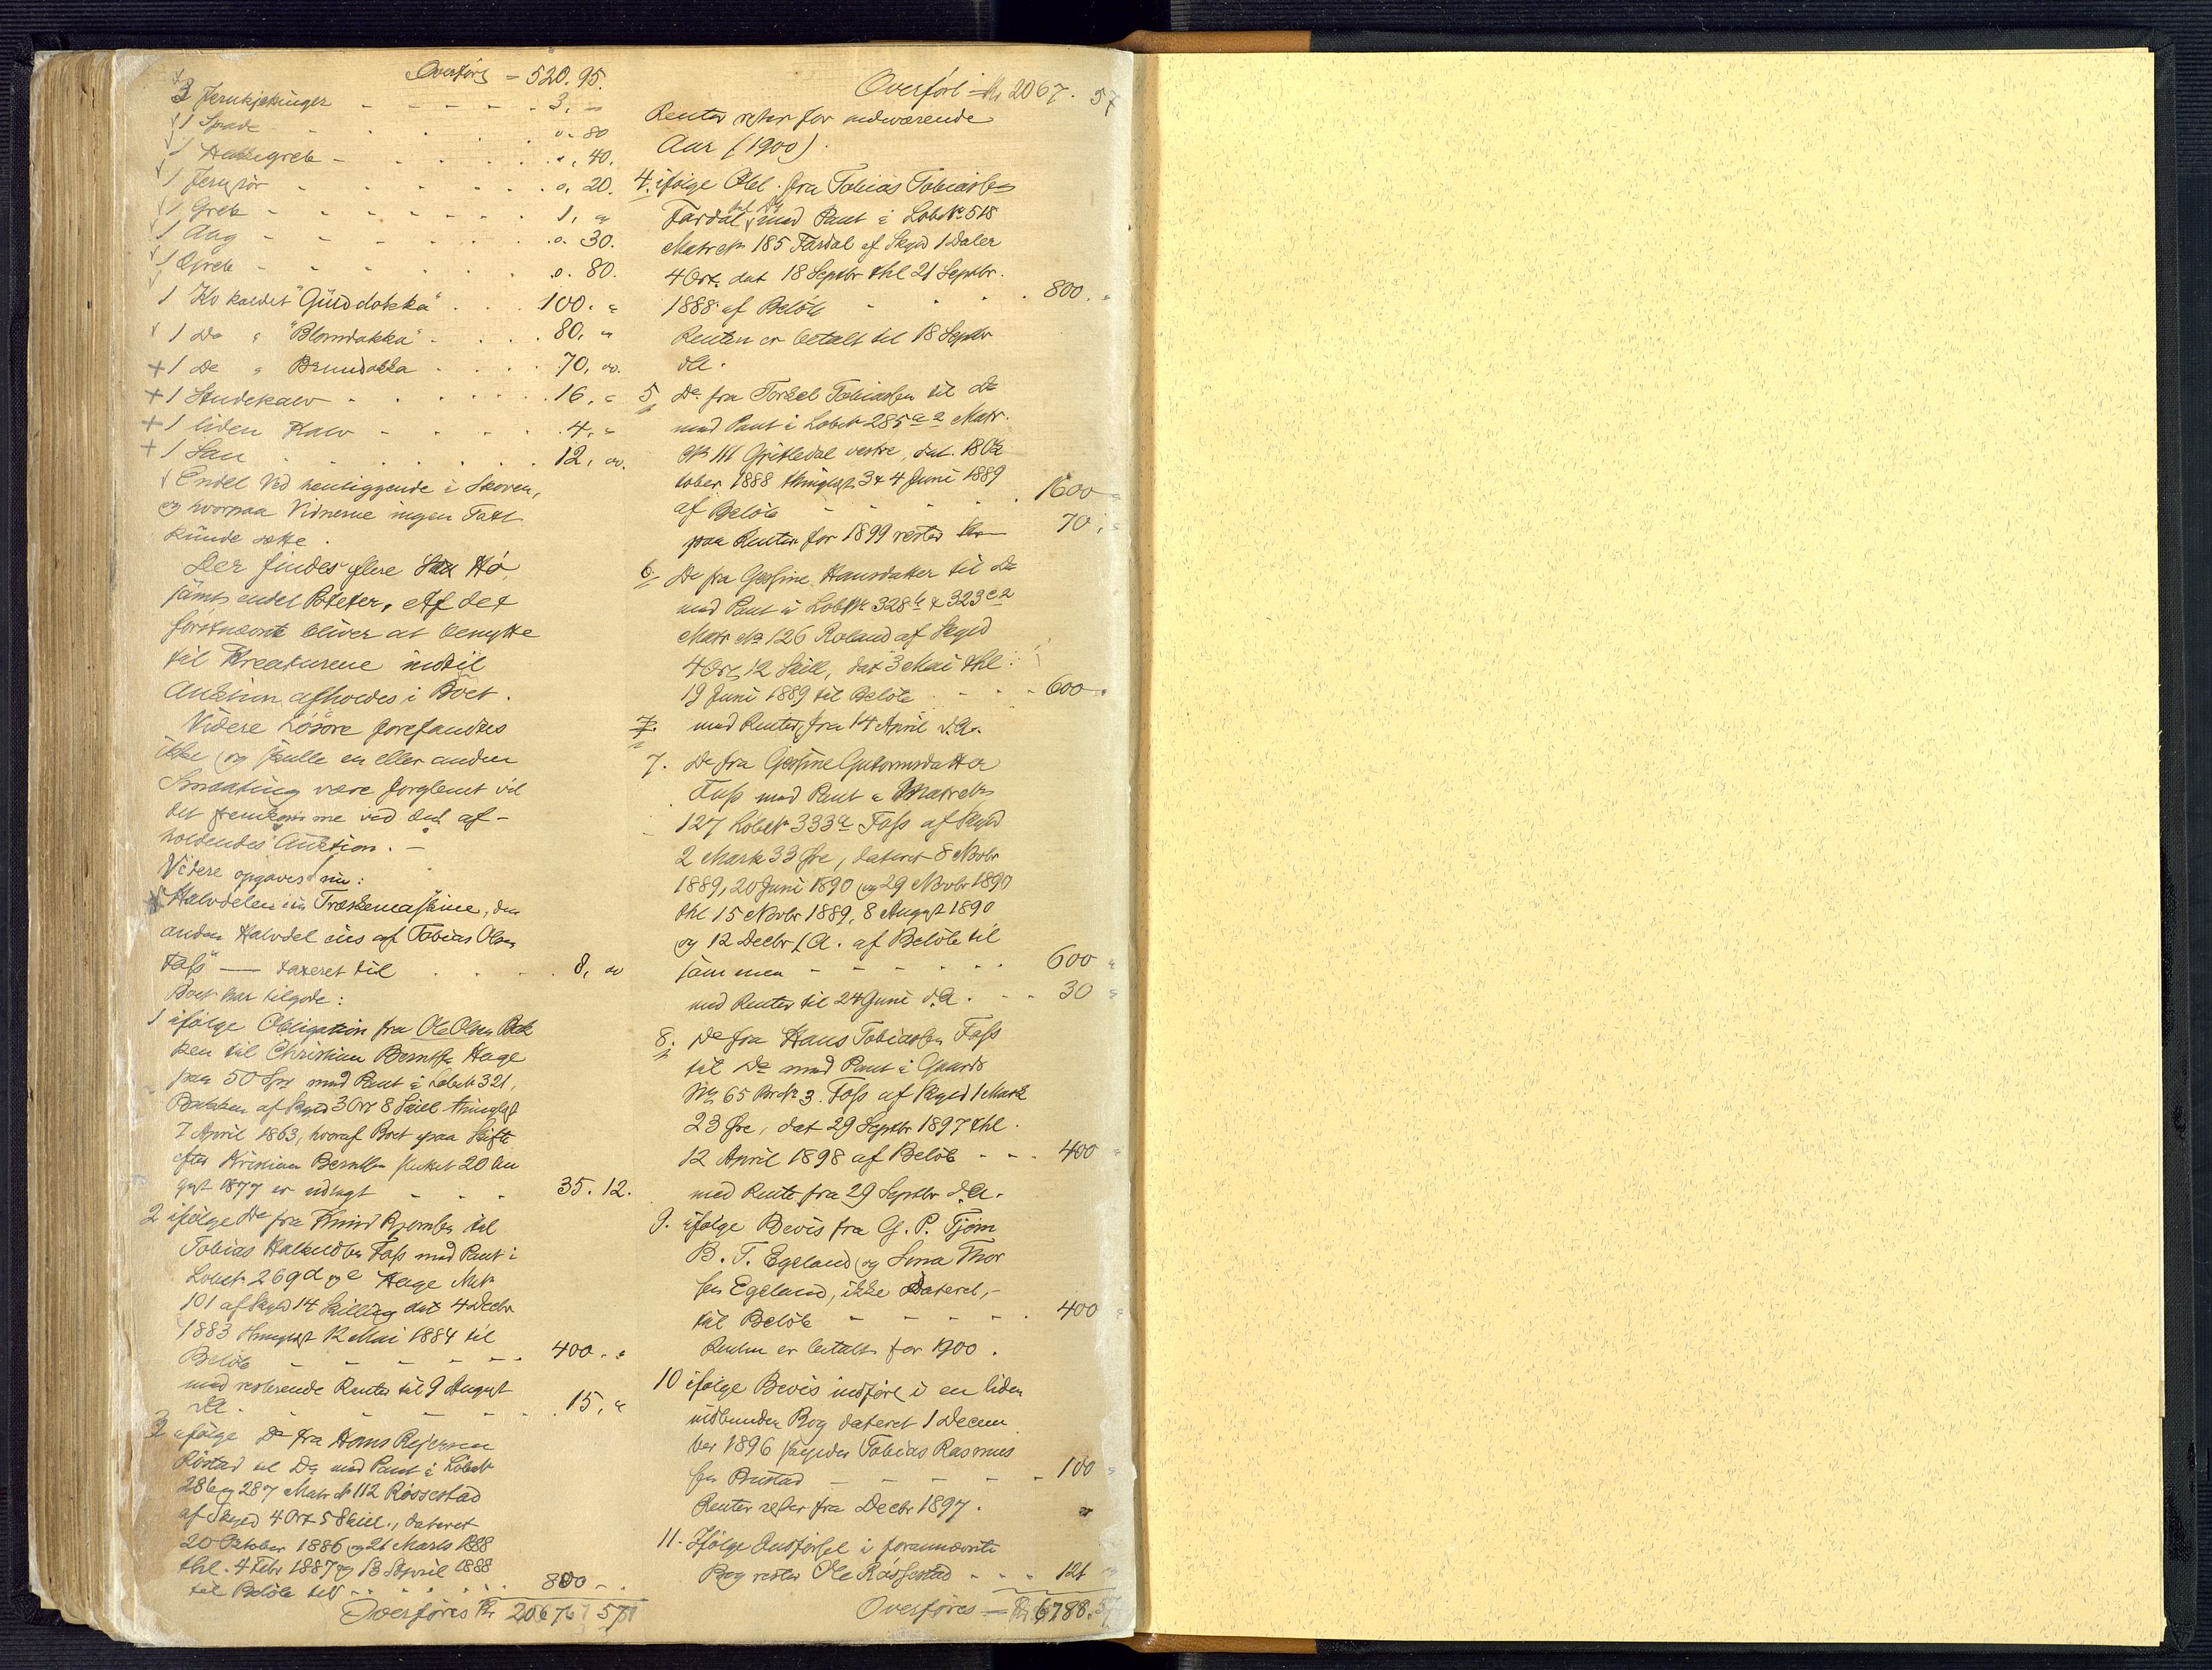 Overført = 520.95.
3 Jernkjækinger - - - - - 3. "
1 Spade - - - - 0. 80
1 Hakkegreb - - - - 0, 40.
1 Jernrør - - - - 0, 20.
1 Greb - - - - - 1, "
1 Aag - - - - - 0. 30.
1 Greb - - - - 0. 80.
1 Ko kaldet "Gulddokka" . . . 100. "
1 Do " "Blomdokka" - . . . 80, "
+ 1 Do " Brundokka . . . . 70, "
+ 1 Studekalv - . . . . . 16. "
+ 1 liden Kalv - - . . . 4. "
+ 1 Sau . . . . . . 12, "
Endel Ved henliggende i Skoven,
og hvorpaa Vidnerne ingen Taxt
kunde sætte.
Der findes flere Hø
samt endel Poteter. Af det
førstnævnte bliver at benytte
til Kreaturene indtil
Auktion afholdes i Boet.
Videre Løsøre forefandtes
ikke og skulle en eller anden
Smaating være forglemt vil
det fremkomme ved den af-
holdendes Auktion. -
Videre opgaves nu:
Halvdelen i en Træskemaskine, den
anden Halvdel eies af Tobias Olsen
Fass - taxeret til . . . . 8, "
Boet har tilgode:
1 ifølge Obligation fra Ole Olsen Bak
ken til Christian Berntsen Hage
paa 50 Spd med Pant i Løbeno 321,
Bakken af Skyld 3 Ort 8 Skill thinglyst
7 April 1863, hvoraf Boet paa Skifte
efter Kristian Berntsen sluttet 20 Au
gust 1877 er udlagt - - - 35. 12.
2 ifølge Do fra Knud Bjørnsen til
Tobias Fass med Pant i
Løbeno 269 d og e Hage Mno
101 af Skyld 14 Skilling dat 4 Decbr
1883 thinglyst 12 Mai 1884 til
Beløb - - - - - 400. "
med resterende Renter til 9 August
d.A. - - - - - 15, "
3 ifølge Do fra Hans Rejersen
Røstad til Do med Pant i Løbeno
286 og 287 Matr No 112 Røssestad
af Skyld 4 Ort 5 Skill., dateret
20 Oktober 1886 og 21 Marts 1888
thl. 4 Febr 1887 og 13 April 1888
til Beløb till - - - - - 800 - .
Overføres Kr 2067 57
Overført = Kr 2067. 57
Renter rester for nedværende
Aar (1900).
4. ifølge Obl. fra Tobias Tobiassen
Fardal med Pant i Løbeno 518
Matr No 185 Fardal af Skyld 1 Daler
4 Ort. dat 18 Septbr thl 21 Septbr.
1888 af Beløb - . . . 800. "
Renten er betalt til 18 Septbr
d.A.
5, Do fra Torkel Tobiassen til Do
med Pant i Løbeno 285 a 2 Matr.
No 111 Gritledal vestre, dat. 18 Ok
tober 1888 thinglyst 3 & 4 Juni 1889
af Beløb - - . . 1600 "
paa Renter for 1899 rester Kr 70, "
6. Do fra Gesine Hansdatter til Do
med Pant i Løbeno 328 b & 323 c 2
Matr No 126 Roland af Skyld
4 Ort 12 Skill, dat 3 Mai thl.
19 Juni 1889 til Beløb . - - - 600 .
7. med Renter fra 14 April d.A.
7. Do fra Gesine Gutormsdatter
Fass med Pant i Matrno
127 Løbeno 333 a Fass af Skyld
2 Mark 33 Øre, dateret 8 Novbr
1889, 20 Juni 1890 og 29 Novbr 1890
thl 15 Novbr 1889, 8 August 1890
og 12 Decbr s.A. af Beløb til
sammen - - - - - 600 "
med Renter til 24 Juni d.A. . - - 30 "
8. Do fra Hans Tobiassen Fass
til Do med Pant i Gaards
No 65 Br No 3. Fass af Skyld 1 Mark
23 Øre, dat 29 Septbr 1897 thl.
12 April 1898 af Beløb - - - 400 "
med Rente fra 29 Septbr d.A.
9. ifølge Bevis fra G. P. Tjøm
B. T. Egeland og Sina Thor
sen Egeland, ikke dateret, -
til Beløb - - - - . 400 "
Renten er betalt for 1900.
10 ifølge Bevis indført i en liden
indbunden Bog dateret 1 Decem
ber 1896 skylder Tobias Rasmus
sen Brustad - - - - - 100 "
Renter rester fra Decbr 1897. "
11. Ifølge Indførsel i forannævnte
Bog rester Ole Røssestad - - - 121 "
Overføres = Kr 6788.57